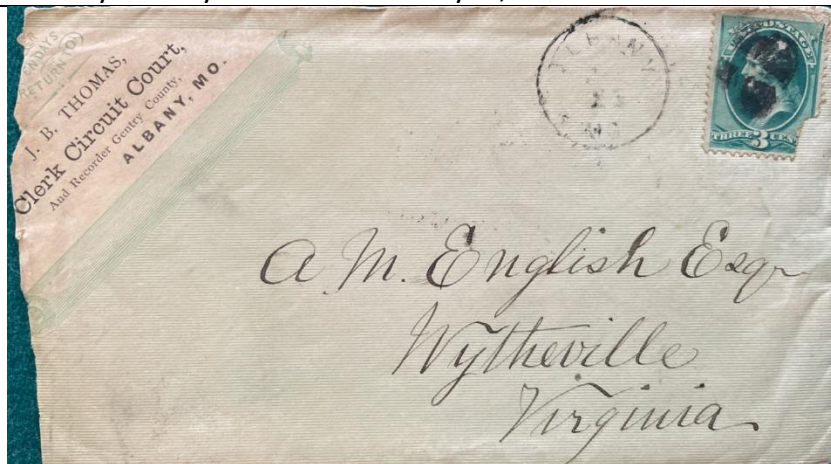 DAYS
RETURN TO
J. B. THOMAS,
Clerk Circuit Court,
And Recorder Gentry County,
ALBANY, MO.
ALBANY
MO
U.S. POSTAGE
THREE 3 CEN
A. M. English Esqr
Wytheville
Virginia